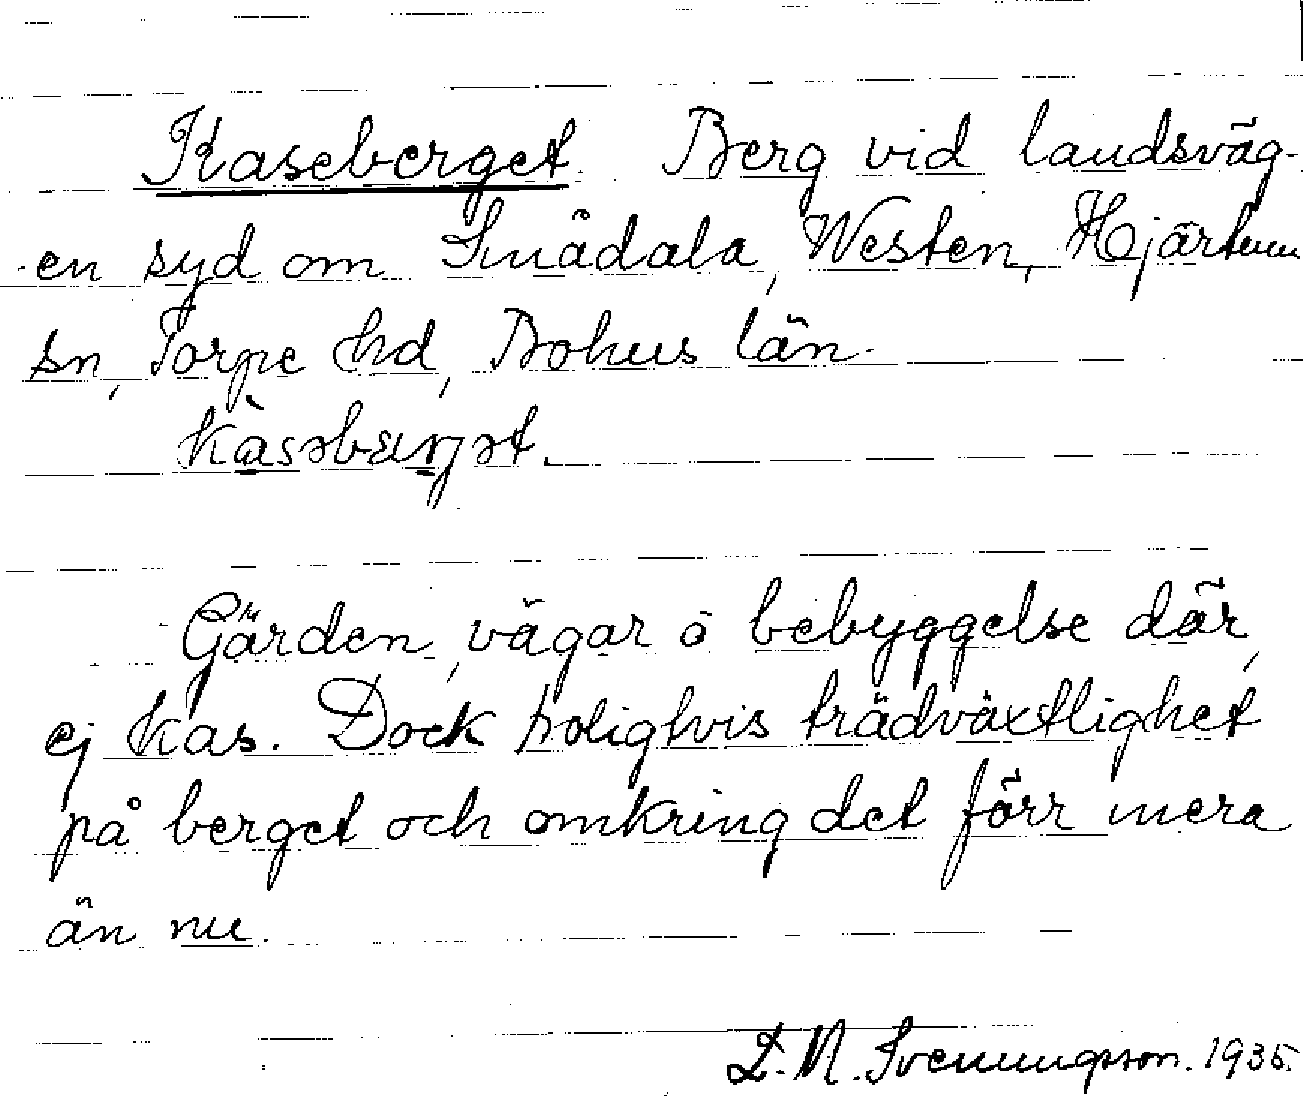 Kaseberget. Berg vid landsväg-
en syd om Smådala, Westen, Hjärtum
sn, Torpe hd, Bohus län.
kàsəbærjət.
Gärden, vägar o bebyggelse där,
ej kas. Dock troligtvis trädväxtlighet
på berget och omkring det förr mera
än nu.
D. N. Svenningsson. 1935.